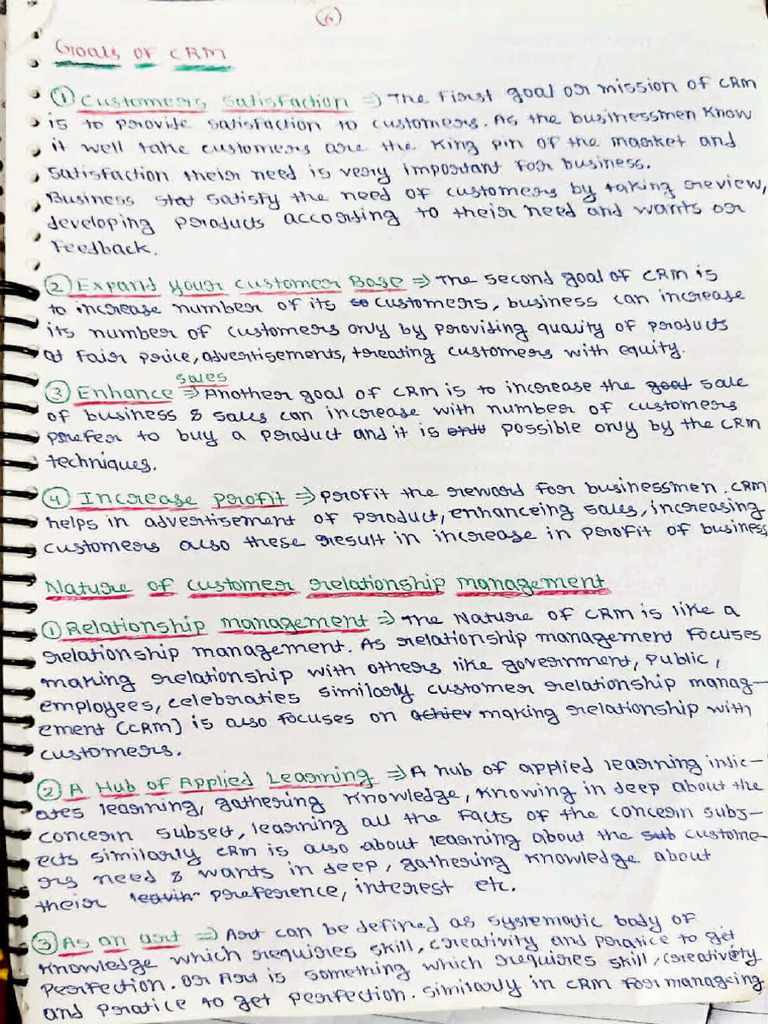 6
Goals of CRM
① Customers Satisfaction ⇒ The first goal or mission of CRM
is to provide satisfaction to customers. As the businessmen know
it well take customers are the King pin of the market and
satisfaction their need is very important for business.
Business satisfy the need of customers by taking review,
developing products according to their need and wants or
feedback.
② Expand your customer Base ⇒ The second goal of CRM is
to increase number of its customers, business can increase
its number of customers only by providing quality of products
at fair price, advertisements, treating customers with equity.
sales
③ Enhance ⇒ Another goal of CRM is to increase the sale
of business & sales can increase with number of customers
prefer to buy a product and it is possible only by the CRM
techniques.
④ Increase profit ⇒ profit the reward for businessmen. CRM
helps in advertisement of product, enhanceing sales, increasing
customers also these result in increase in profit of business
Nature of customer relationship management
① Relationship management ⇒ The Nature of CRM is like a
relationship management. As relationship management focuses
making relationship with others like government, public,
employees, celebraties similarly customer relationship manag-
ement (CRM) is also focuses on making relationship with
customers.
② A Hub of Applied Learning ⇒ A hub of applied learning indic-
ates learning, gathering knowledge, knowing in deep about the
concern subject, learning all the facts of the concern subj-
ects similarly CRM is also about learning about the custome-
rs need & wants in deep, gathering knowledge about
their preference, interest etc.
③ As an art ⇒ Art can be defined as systematic body of
knowledge which requires skill, creativity and pratice to get
perfection. Or Art is something which requires skill, creativity
and pratice to get perfection. similarly in CRM for manageing